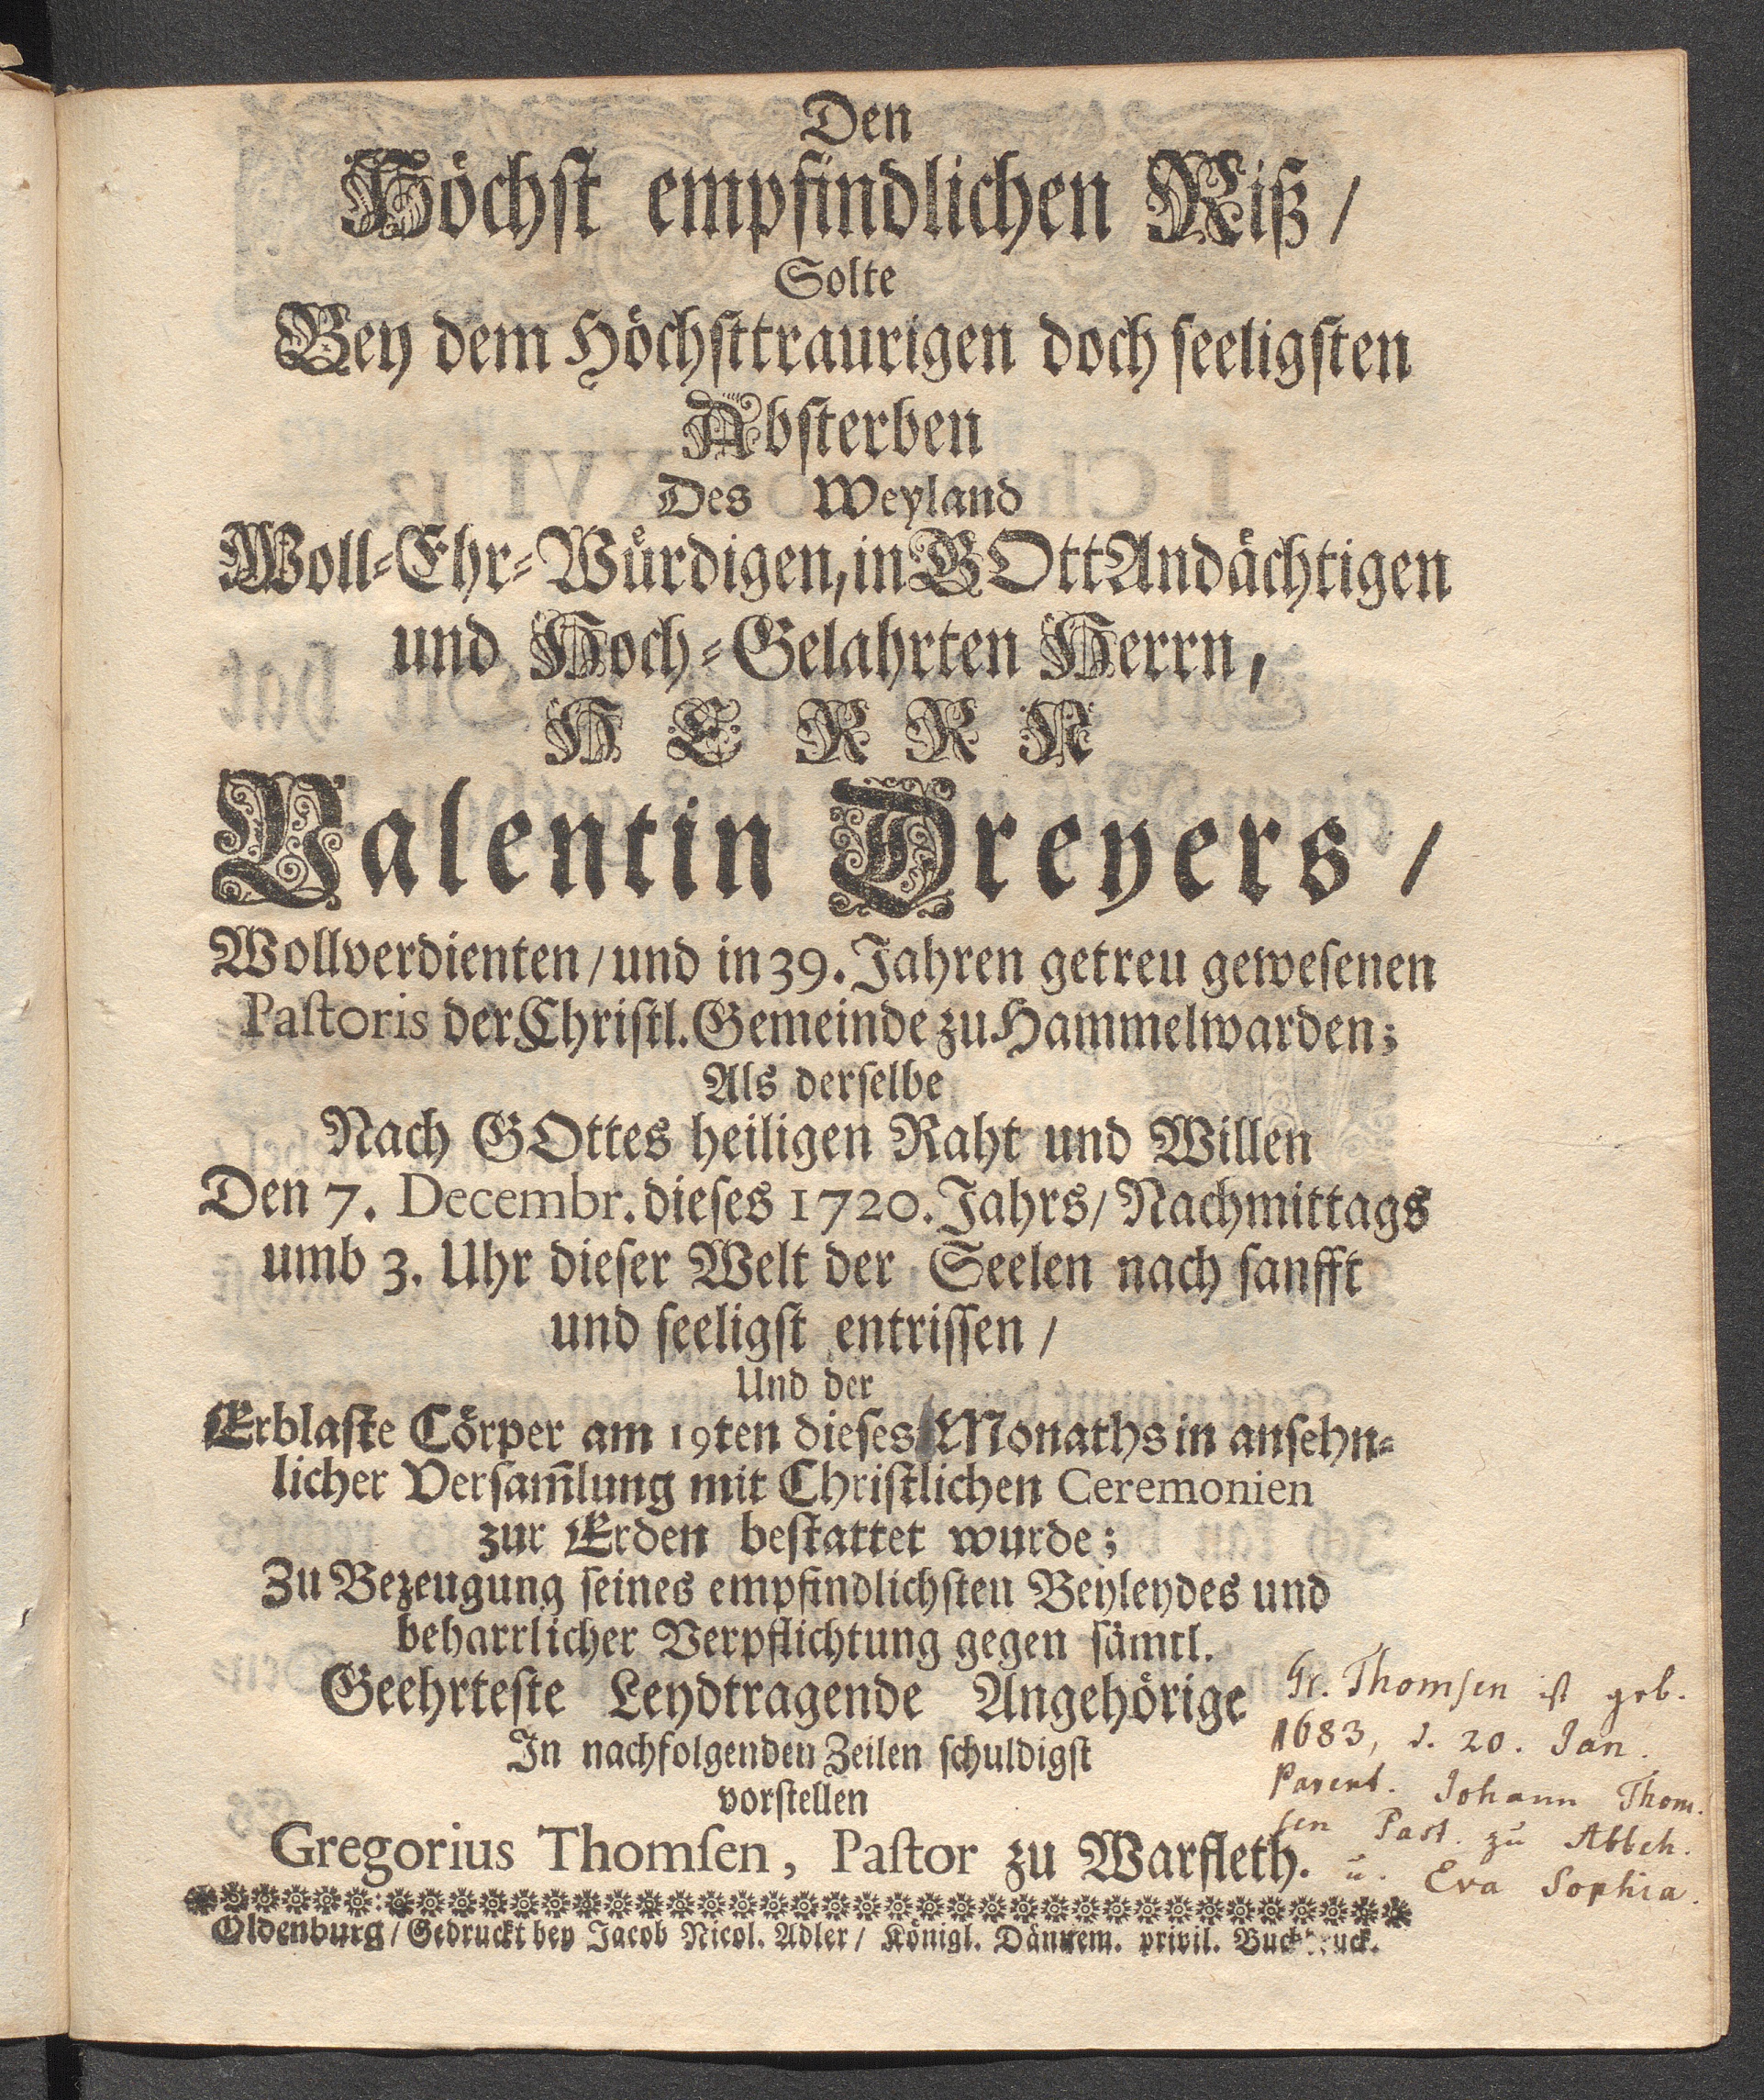 Den
Höchst empfindlichen Riß/
Solte
Bey dem Höchsttraurigen doch seeligsten
Absterben
Des Weyland
Woll-Ehr-Würdigen, in GOtt Andächtigen
und Hoch-Gelahrten Herrn,
HERRN
Valentin Dreyers/
Wollverdienten/ und in 39. Jahren getreu gewesenen
Pastoris der Christl. Gemeinde zu Hammelwarden;
Als derselbe
Nach GOttes heiligen Raht und Willen
Den 7. Decembr. dieses 1720. Jahrs/ Nachmittags
umb 3. Uhr dieser Welt der Seelen nach sanfft
und seeligst entrissen/
Und der
Erblaste Cörper am 19ten dieses Monaths in ansehn-
licher Versam̃lung mit Christlichen Ceremonien
zur Erden bestattet wurde;
Zu Bezeugung seines empfindlichsten Beyleydes und
beharrlicher Verpflichtung gegen sämtl.
Geehrteste Leydtragende Angehörige
In nachfolgenden Zeilen schuldigst
vorstellen
Gregorius Thomsen, Pastor zu Warfleth.
Oldenburg/ Gedruckt bey Jacob Nicol. Adler/ Königl. Dännem. privil. Buchdruck.
Gr. Thomsen ist geb.
1683, d. 20. Jan.
Parent. Johann Thom.
sen Past. zu Abbeh.
u. Eva Sophia.